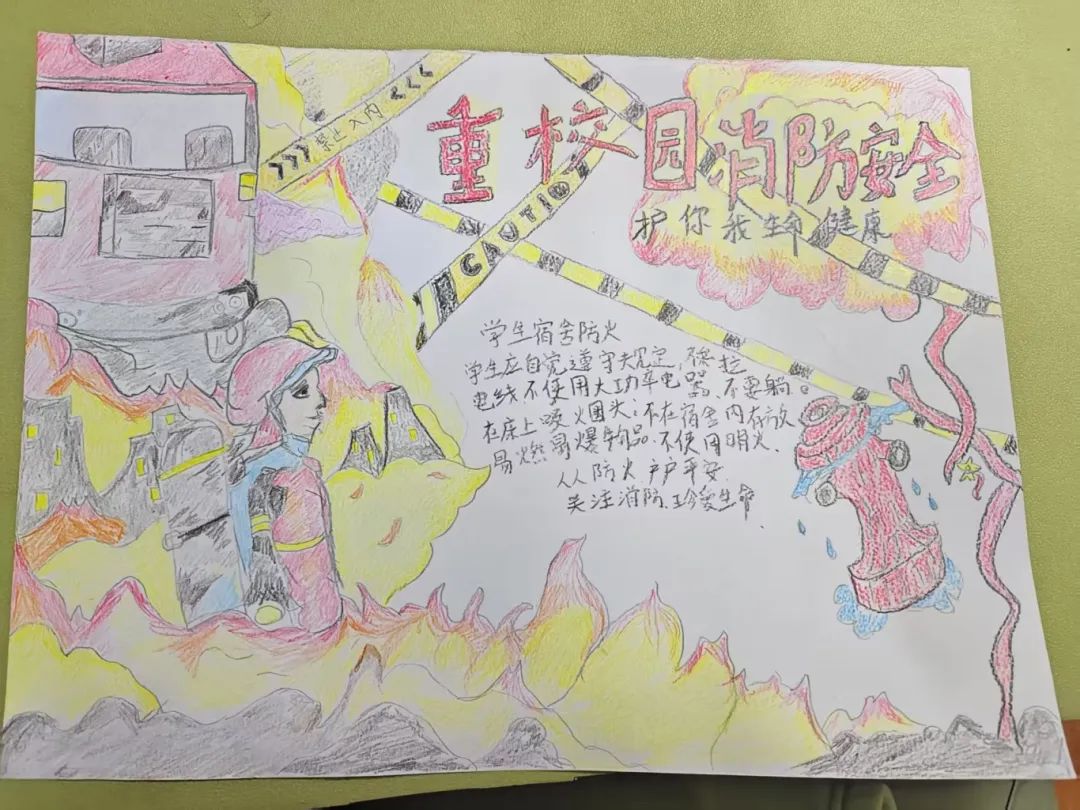 >>> 禁止入内 <<<
CAUTION
重校园消防安全
护你我生命健康
学生宿舍防火
学生应自觉遵守规定,拉
电线不使用大功率电器,不要躺
在床上吸火图头:不在宿舍内存放
易燃易爆物品.不使用明火.
人人防火户户平安
关注消防.珍爱生命.